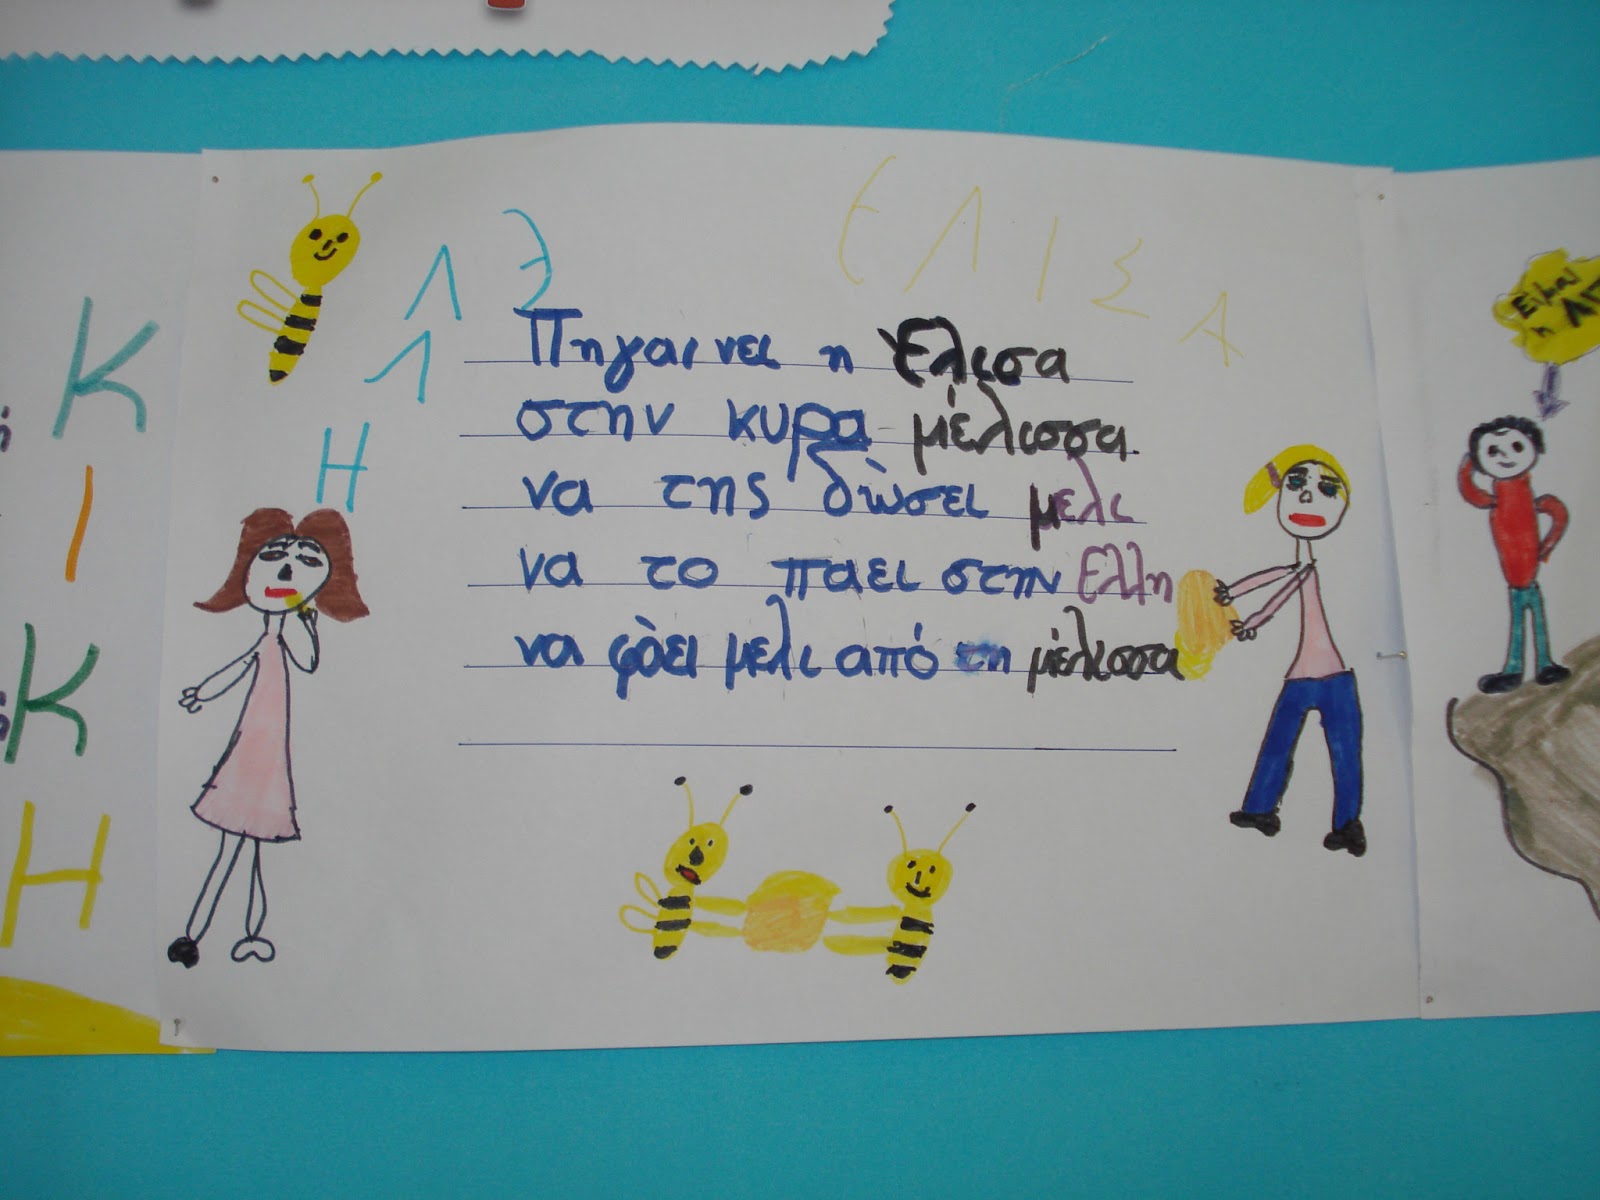 ΕΛΙΣΑ
ΕΛΛΗ
Πηγαινει η Ελισα
στην κυρα μέλισσα.
να της δώσει μελι
να το παει στην Ελλη
να φάει μελι από τη μέλισσα
Κ
Ι
Κ
Η
Είμαι
η